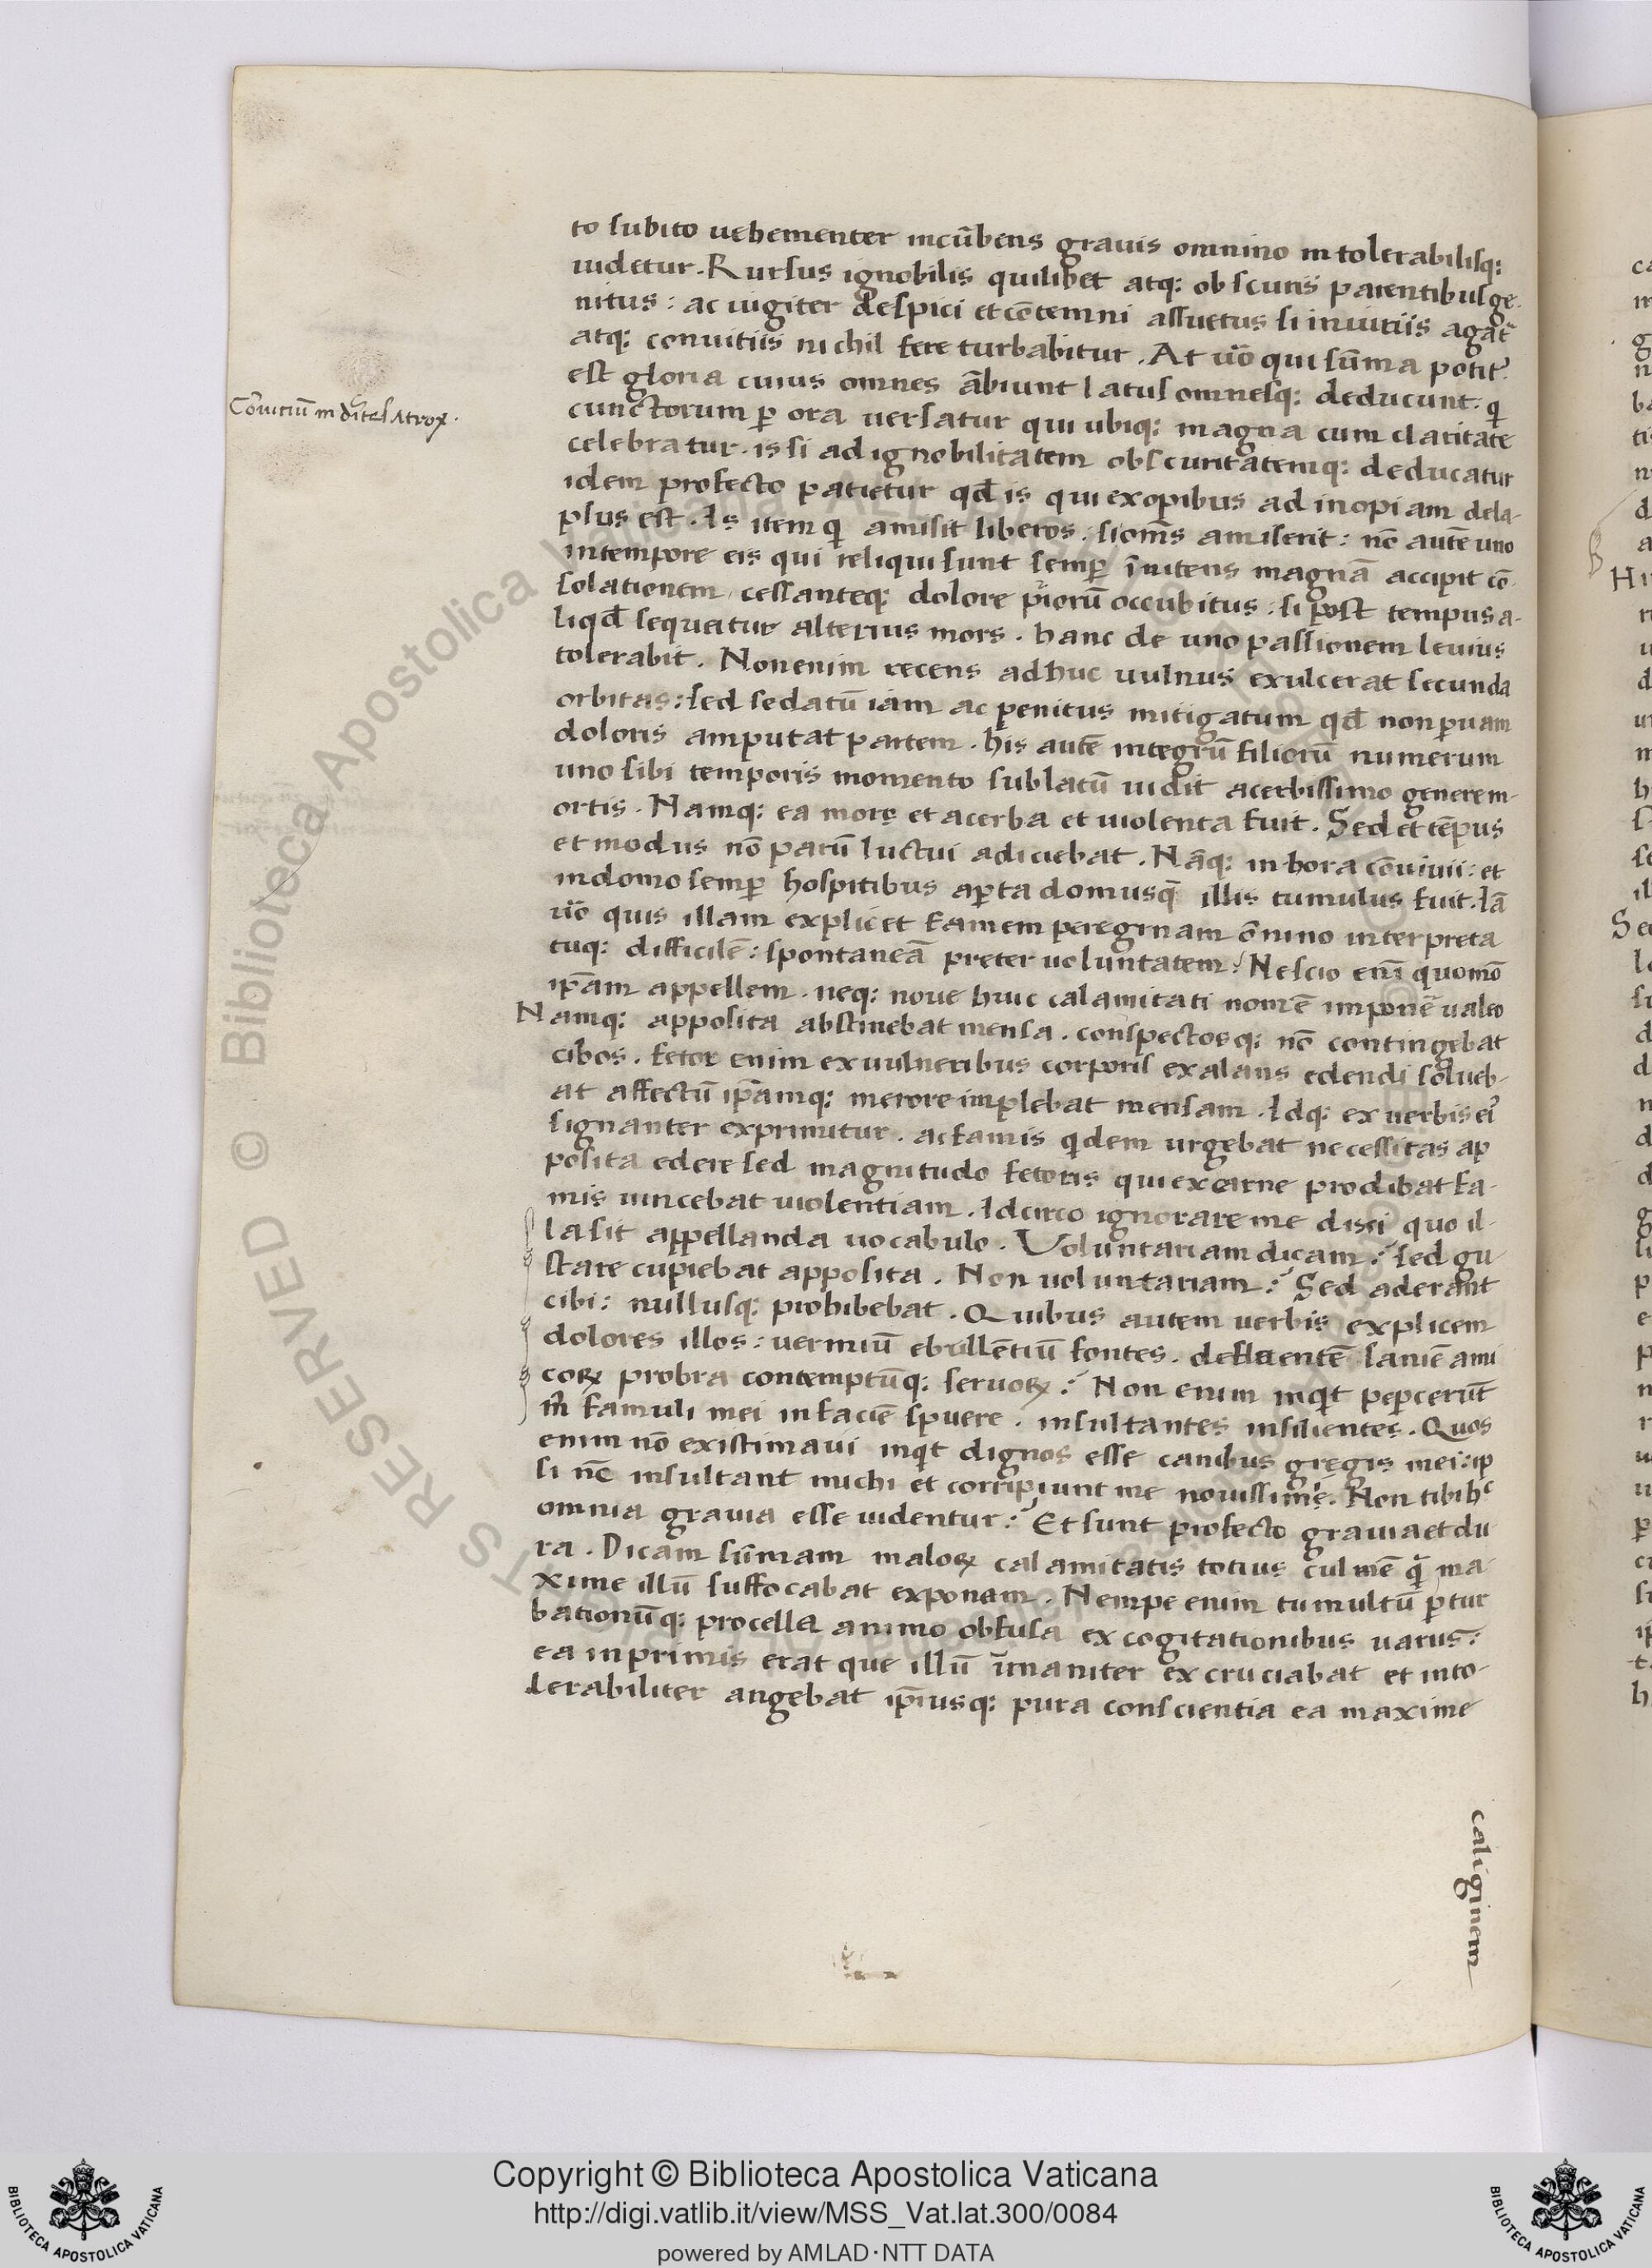 to subito uehementer incūbens grauis omnino intolerabilisq:
uidetur. Rursus ignobilis quilibet atq: obscuris parentibus ge-
nitus: ac iugiter despici et cōtemni assuetus si iniuriis agat̄
atq: conuitiis nichil fere turbabitur. At uo͛ qui sūma potit͛
est gloria cuius omnes ābiunt latus omnesq: deducunt. qͥ
Cōuitiū in dites atrox.
cunctorum ꝑ ora uersatur qui ubiq: magna cum claritate
celebratur. is si ad ignobilitatem obscuritatemq: deducatur
idem profecto patietur qđ is qui ex opibus ad inopiam dela-
psus est. Is item qͥ amisit liberos. si om̄s amiserit: nō autē uno
in tempore eis qui reliqui sunt semꝑ īnitens magnā accipit cō-
solationem, cessanteq: dolore pͥorū occubitus. si post tempus a-
liqđ sequatur alterius mors. hanc de uno passionem leuius
tolerabit. Non enim recens adhuc uulnus exulcerat secunda
orbitas: sed sedatū iam ac penitus mitigatum qđ non ꝑuam
doloris amputat partem. his autē integrū filiorū numerum
uno sibi temporis momento sublatū uidit acerbissimo genere m-
ortis. Namq: ea mors et acerba et uiolenta fuit. Sed et tēpus
et modus nō parū luctui adiciebat. Nāq: in hora cōuiuii: et
in domo semꝑ hospitibus aꝑta domusq̄ illis tumulus fuit. Iā
uo͛ quis illam explicet famem peregrinam ōnino interpreta
tuq: difficilē: spontaneā preter uoluntatem? Nescio eni͞ quomō
ip̄am appellem. neq: noue huic calamitati nomē imponē ualeo
Namq: apposita abstinebat mensa. conspectosq: nō contingebat
cibos. fetor enim ex uulneribus corporis exalans edendi solueb-
at affectū ip̄amq: merore implebat mensam. Idq: ex uerbis ei͛
signanter exprimitur. ac famis qͥdem urgebat necessitas ap
posita edere sed magnitudo fetoris qui ex carne prodibat fa-
mis uincebat uiolentiam. Idcirco ignorare me dixi quo il-
la sit appellanda uocabulo. Voluntariam dicam? sed gu-
stare cupiebat apposita. Non uoluntariam? Sed aderant
cibi: nullusq: prohibebat. Quibus autem uerbis explicem
dolores illos: uermiū ebullētiū fontes. defluentē saniē ami
coꝝ probra contemptūq: seruoꝝ? Non enim inqͥt pepcerūt
m̄ famuli mei in faciē spuere. insultantes insilientes. Quos
enim nō existimaui inqͥt dignos esse canibus gregis mei: ip
si nc̄ insultant michi et corripiunt me nouissime. Non tibi hᶜ
omnia grauia esse uidentur? Et sunt profecto grauia et du
ra. Dicam sūmam maloꝝ calamitatis totius culmē qͥ ma-
xime illū suffocabat exponam. Nempe enim tumultū ꝑtur
bationūq: procella animo obfusa ex cogitationibus uariis:
ea inprimis erat que illū īmaniter excruciabat et into-
lerabiliter angebat ip̄iusq: pura conscientia ea maxime
caliginem
Copyright © Biblioteca Apostolica Vaticana
http://digi.vatlib.it/view/MSS_Vat.lat.300/0084
powered by AMLAD·NTT DATA